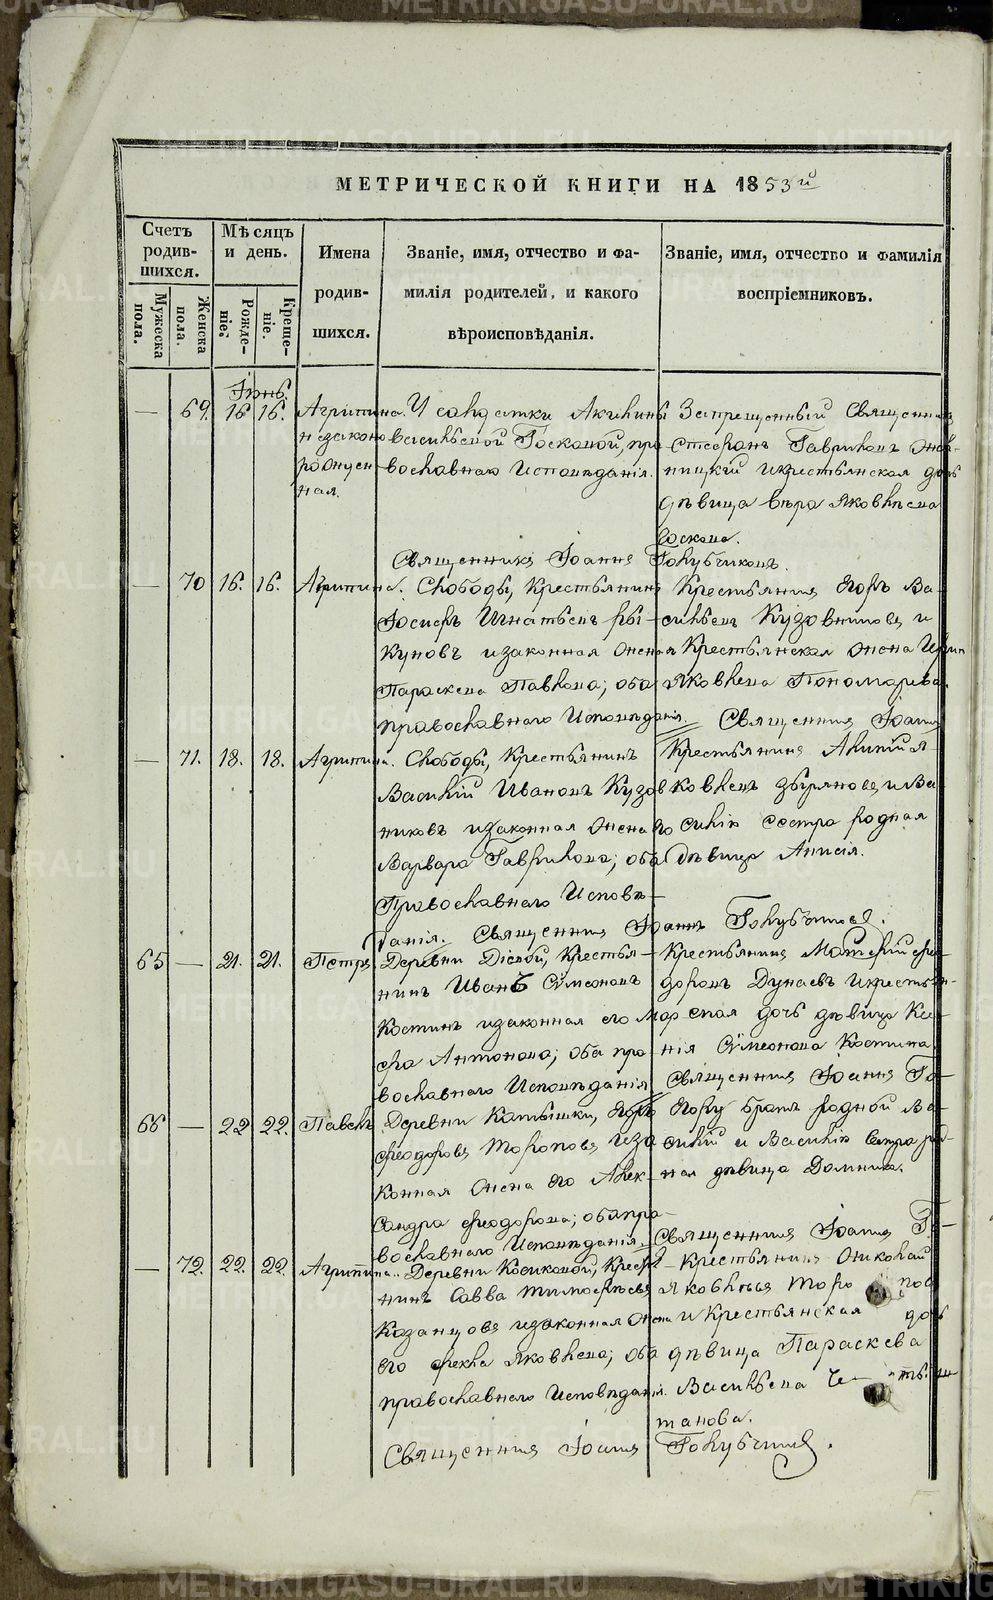 МЕТРИЧЕСКОЙ КНИГИ НА 1853й
Счетъ родившихся.
Мужеска пола.
Женска пола.
Мѣсяцъ и день.
Рожденіе.
Крещеніе.
Имена родившихся.
Званіе, имя, отчество и фамилія родителей, и какого вѣроисповѣданія.
Званіе, имя, отчество и фамилія воспріемниковъ.
Іюнь.
— 69. 16 16. Агрипина незаконнорожденная.
У солдатки Акилины
Васильевой Госковой, пра-
вославнаго Исповѣданія.
Запрещенный Священникъ
Стефанъ Гавриловъ
и крестьянская дочь
дѣвица Вѣра Яковлева
Госкова.
Священникъ Іоаннъ Голубчиковъ.
— 70 16. 16. Агрипина.
Слободы, Крестьянинъ
Іосифъ Игнатьевъ
и законная жена
Параскева Павлова; оба
православнаго Исповѣданія.
Крестьянинъ Егоръ Ва-
сильевъ Кузовниковъ и
Крестьянская жена
Яковлева Пономарева.
Священникъ Іоаннъ
— 71. 18. 18. Агрипина.
Слободы, Крестьянинъ
Василій Ивановъ Кузов-
никовъ и законная жена его
Варвара Гаврилова; оба
Православнаго Исповѣ-
данія.
Крестьянинъ
Яковлевъ Зыряновъ, и Ва-
силію сестра родная
дѣвица Анисія.
Священникъ Іоаннъ Голубчиковъ.
65 — 21. 21. Петръ.
Деревни Крестья-
нинъ Иванъ Симеоновъ
Костинъ и законная его Мар-
фа Антонова; оба пра-
вославнаго Исповѣданія
Крестьянинъ Матвѣй Фео-
доровъ Дунаевъ и крестьян-
ская дочь дѣвица Ксе-
нія Симеонова Костина.
Священникъ Іоаннъ Го-
66 — 22 22. Павелъ.
Деревни Камышки, Егоръ
Феодоровъ Тороповъ и за-
конная жена его Алек-
сандра Феодорова; оба пра-
вославнаго Исповѣданія.
Егору братъ родной Ва-
силій и Василію сестра род-
ная дѣвица Домника.
Священникъ Іоаннъ Го-
— 72. 22. 22. Агрипина.
Деревни Косиковой, Кресть-
нинъ Савва Тимофеевъ
Казанцовъ и законная жена
его Фекла Яковлева; оба
православнаго Исповѣданія.
Крестьянинъ Николай
Яковлевъ Торо пов
и Крестьянская дочь
дѣвица Параскева
Васильева
танова.
Священникъ Іоаннъ Голубчиковъ.
METRIKI.GASO-URAL.RU